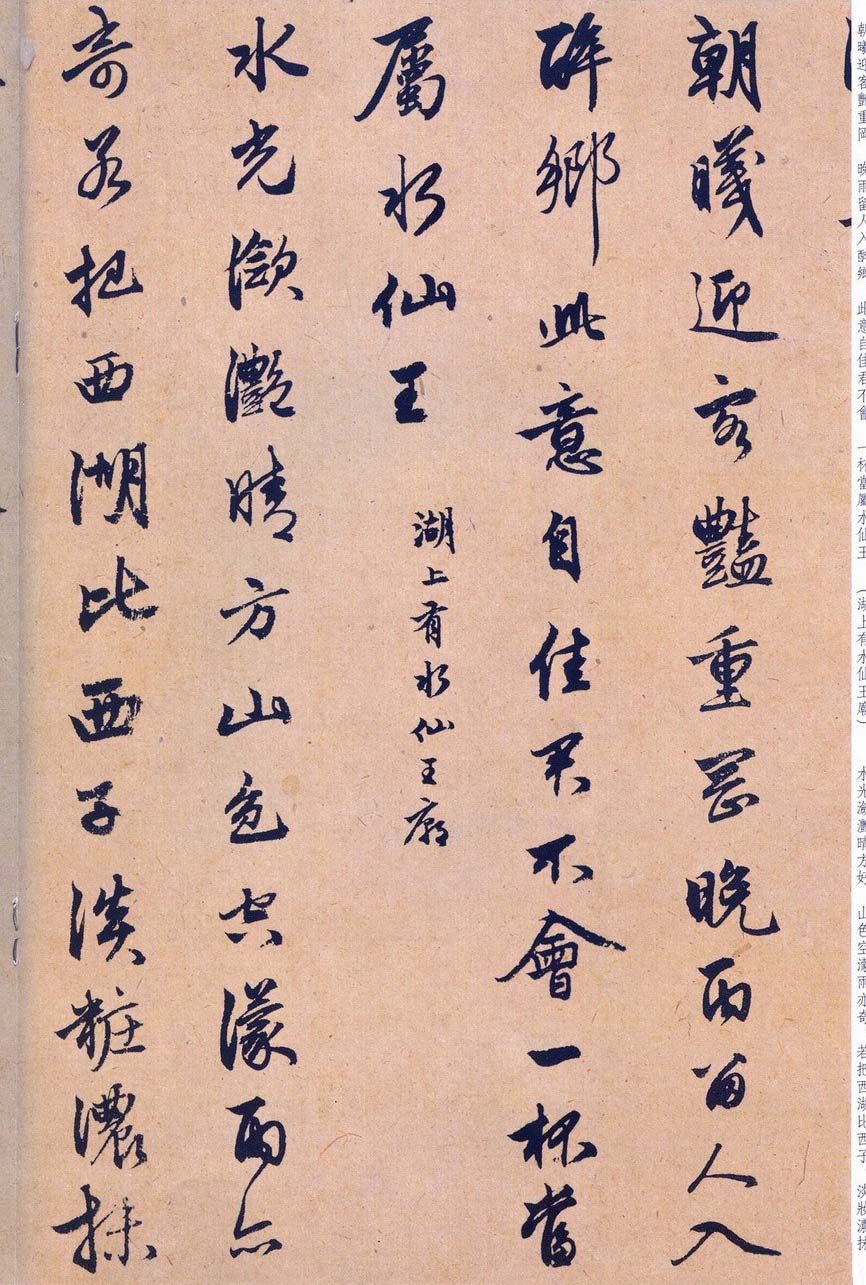 朝曦迎客艷重岡 晚雨留人入醉鄉 此意自佳君不會 一杯當屬水仙王 (湖上有水仙王廟) 水光瀲灩晴方好 山色空濛雨亦奇 若把西湖比西子 淡妝濃抹
朝曦迎客豔重岡晚雨留人入
醉鄉此意自佳君不會一杯當
屬水仙王 湖上有水仙王廟
水光瀲灧晴方山色空濛雨亦
奇若把西湖比西子淡粧濃抹